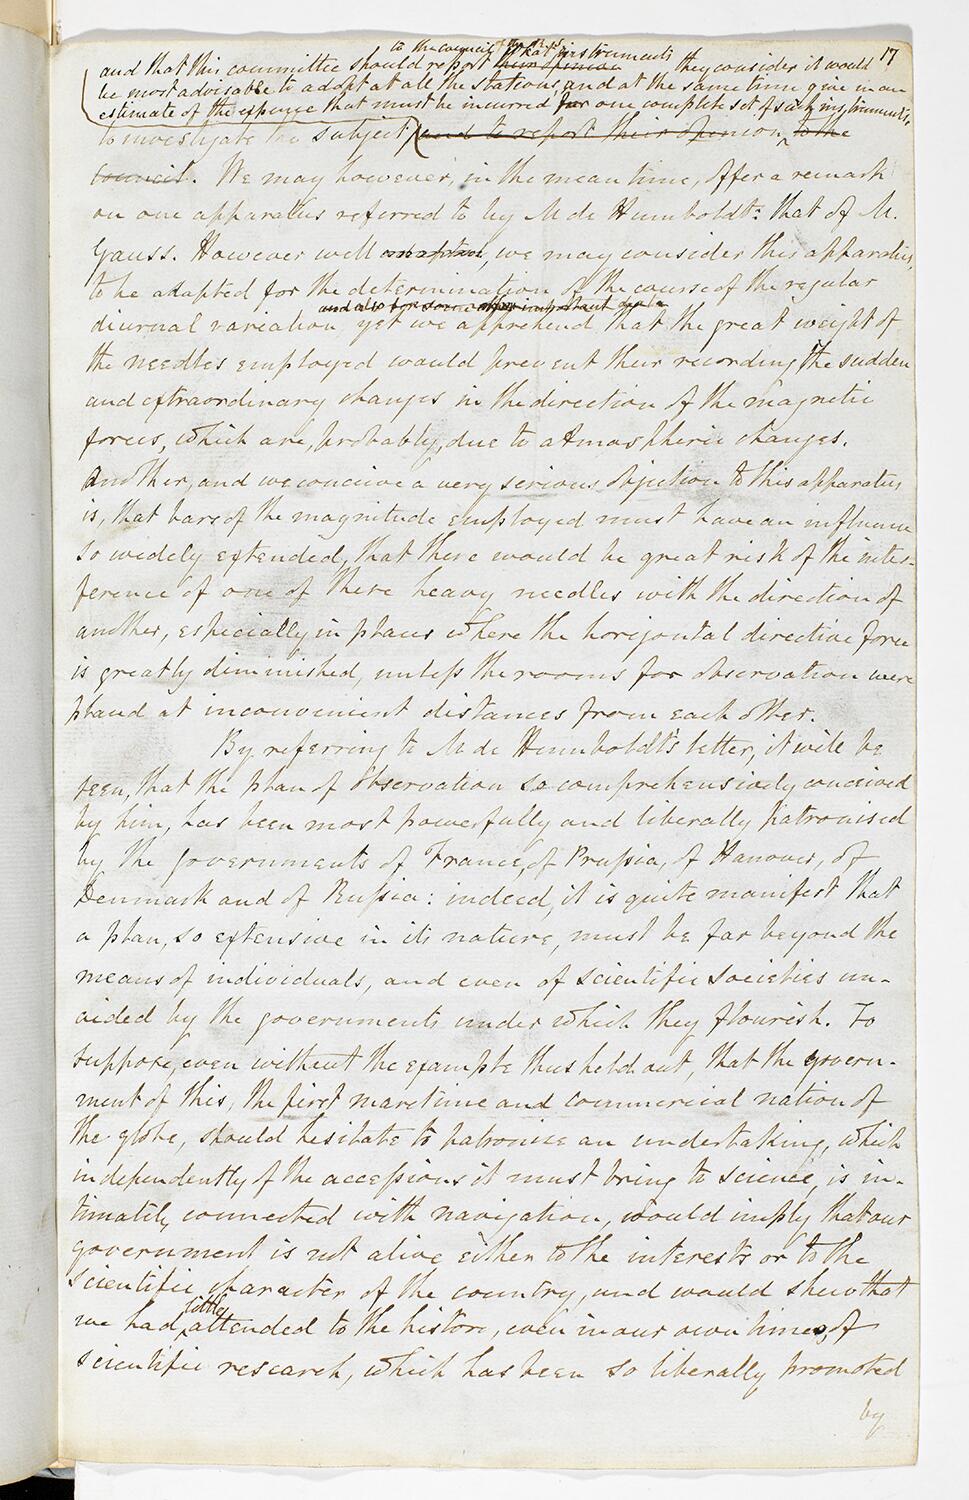 17
to the council of the R.S.
what instruments
and that this committee should report their opinion they consider it would
be most advisable to adopt at all the stations, and at the same time give in an
estimate of the expense that must be incurred for one complete set of such instruments,
to investigate the subject, and to report their opinion to the
Council. We may however, in the mean time, offer a remark
on one apparatus referred to by M de Humboldt: that of M.
Gauss. However well adapted, we may consider this apparatus,
to be adapted for the determination of the course of the regular
and also for some other important
diurnal variation yet we apprehend that the great weight of
the needles employed would prevent their recording the sudden
and extraordinary changes in the direction of the magnetic
forces, which are, probably, due to atmospheric changes.
Another, and we conceive a very serious objection to this apparatus
is, that bars of the magnitude employed must have an influence
so widely extended, that there would be great risk of the inter-
ference of one of these heavy needles with the direction of
another, especially in places where the horizontal directive force
is greatly diminished, unless the rooms for observation were
placed at inconvenient distances from each other.
By referring to M de Humboldt's letter, it will be
seen, that the plan of observation so comprehensively conceived
by him, has been most powerfully and liberally patronised
by the governments of France, of Prussia, of Hanover, of
Denmark and of Russia: indeed, it is quite manifest that
a plan, so extensive in its nature, must be far beyond the
means of individuals, and even of scientific societies un-
aided by the governments under which they flourish. To
suppose, even without the example thus held out, that the govern-
ment of this, the first maritime and commercial nation of
the globe, should hesitate to patronise an undertaking, which
independently of the accessions it must bring to science, is in-
timately connected with navigation, would imply that our
government is not alive either to the interests or to the
scientific character of the country, and would shew that
little
we had attended to the history, even in our own times, of
scientific research, which has been so liberally promoted
by